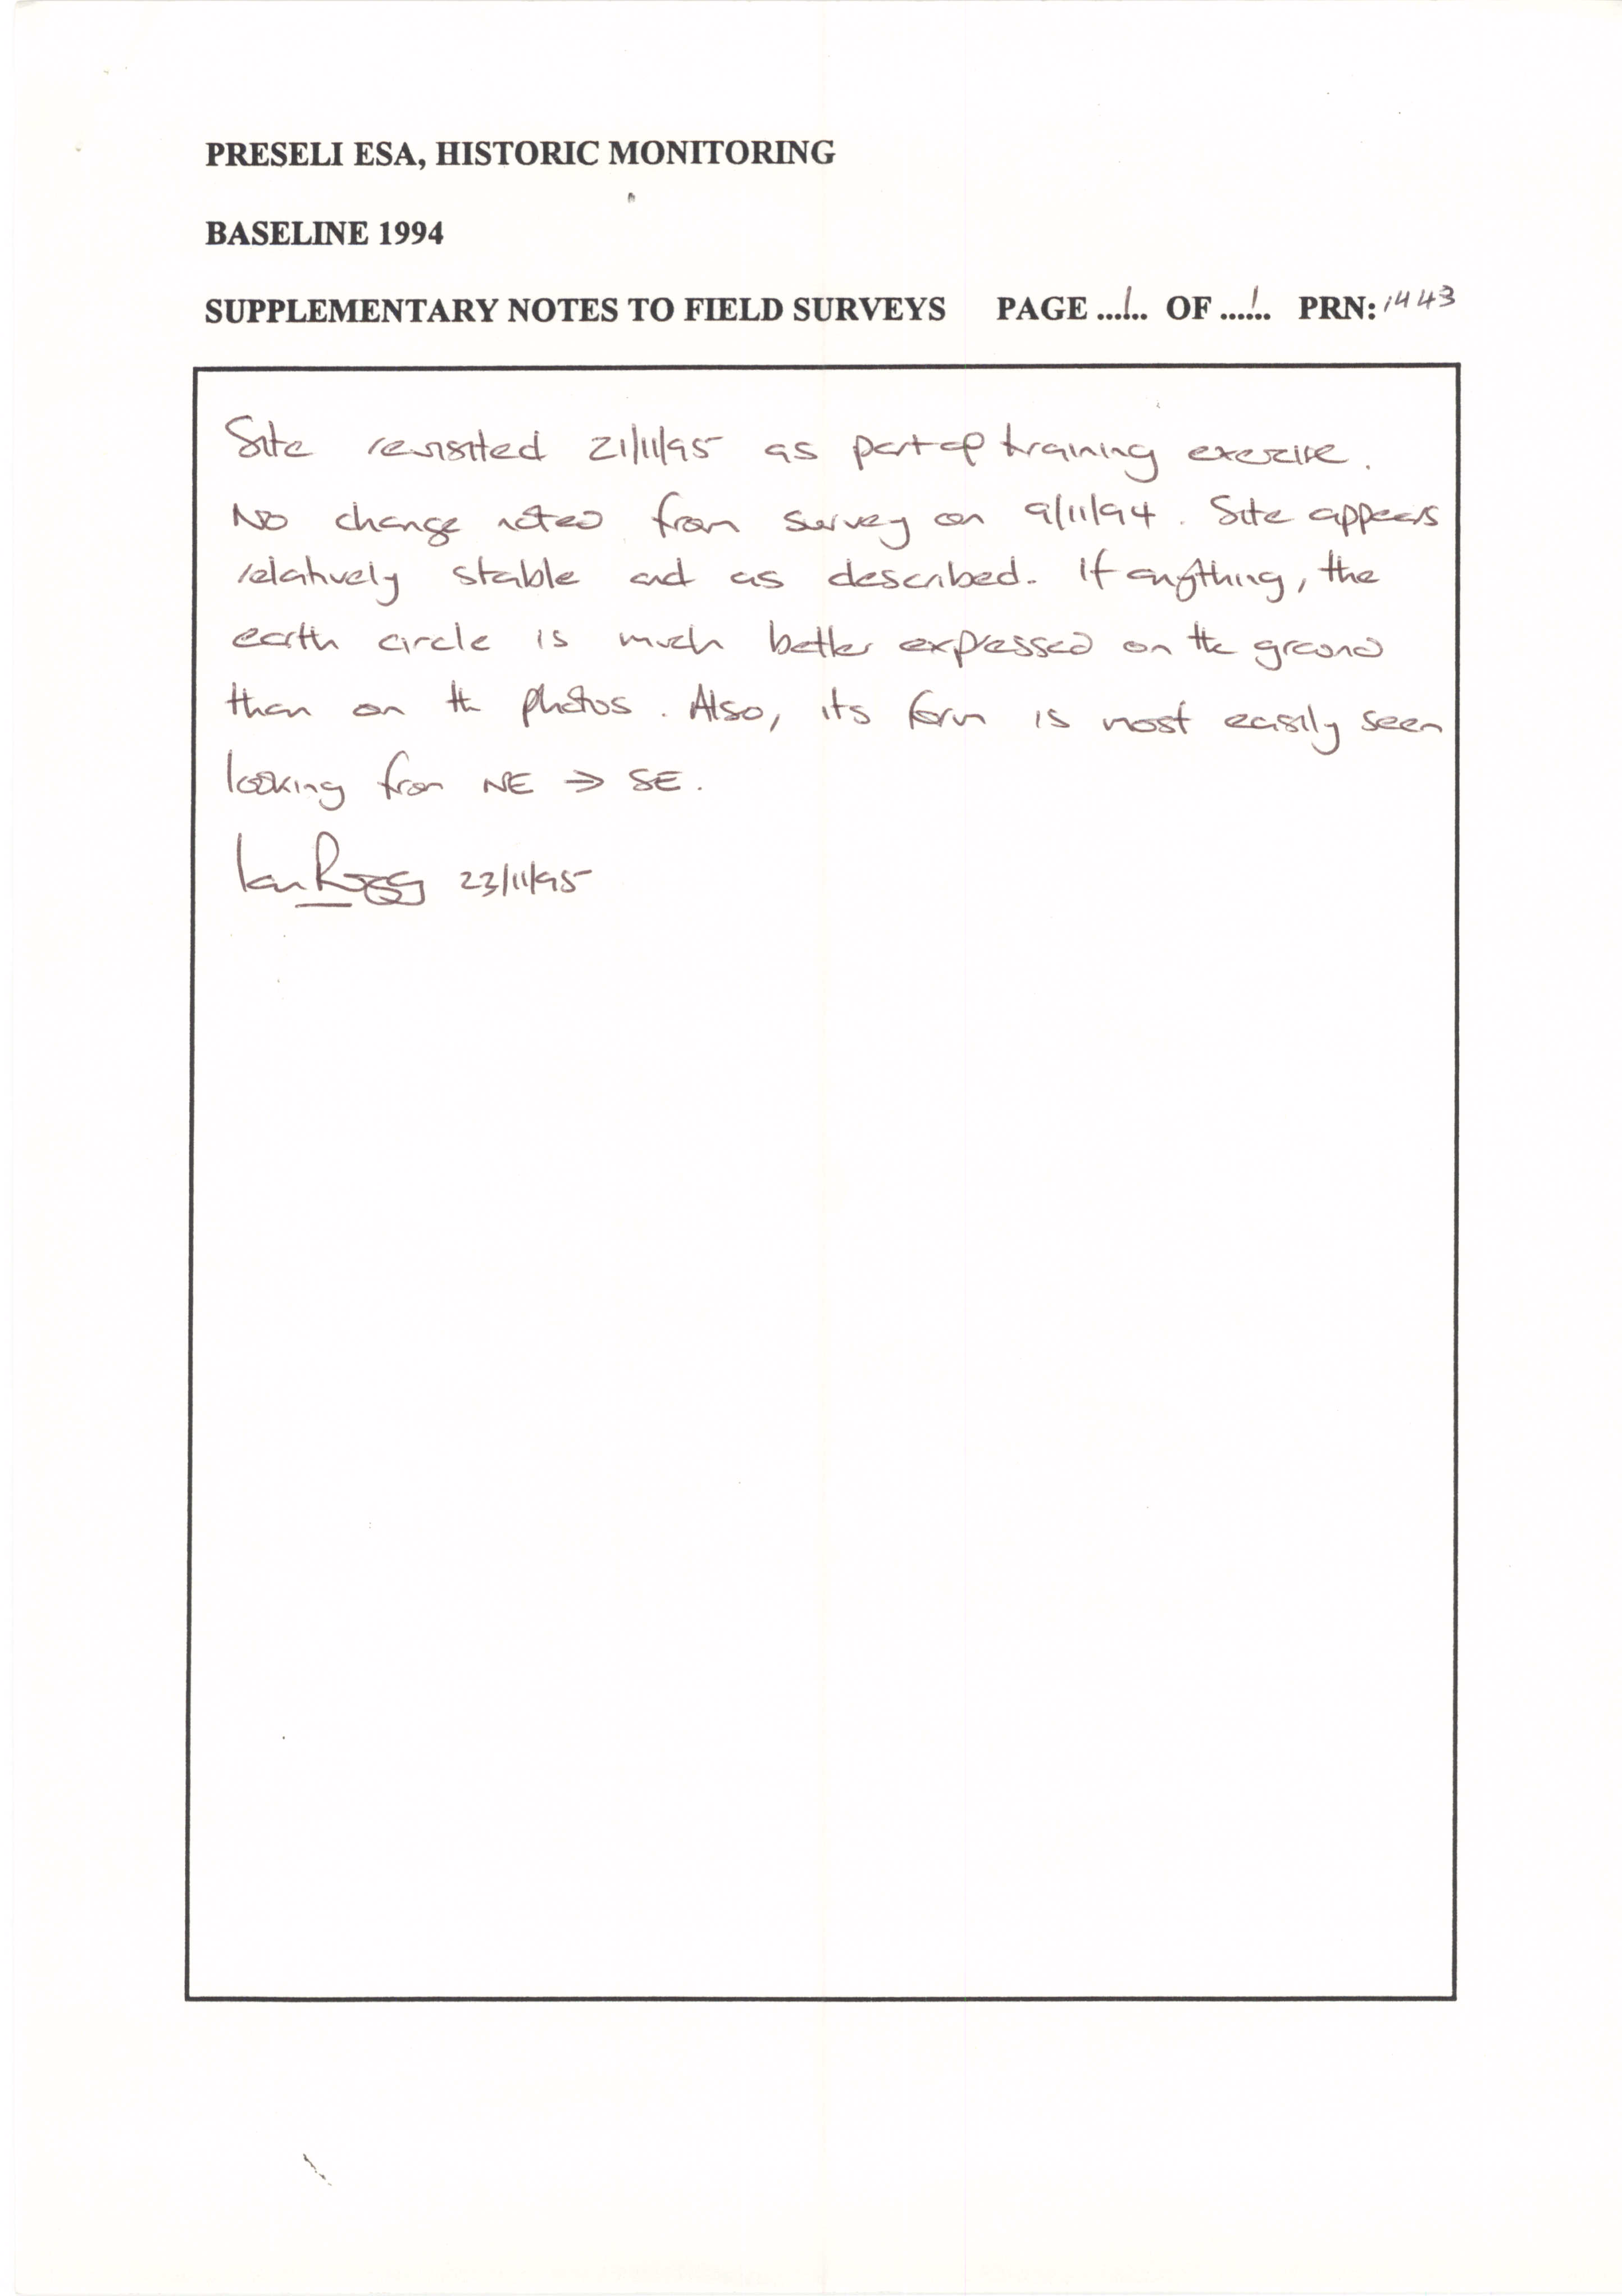 PRESELI ESA, HISTORIC MONITORING
BASELINE 1994
SUPPLEMENTARY NOTES TO FIELD SURVEYS PAGE ...1... OF ...1... PRN: 1443
Site revisited 21/11/95 as part of training exercise.
No change noted from survey on 9/11/94. Site appears
relatively stable and as described. If anything, the
earth circle is much better expressed on the ground
than on th photos. Also, its form is most easily seen
looking from NE → SE.
Ian 23/11/95